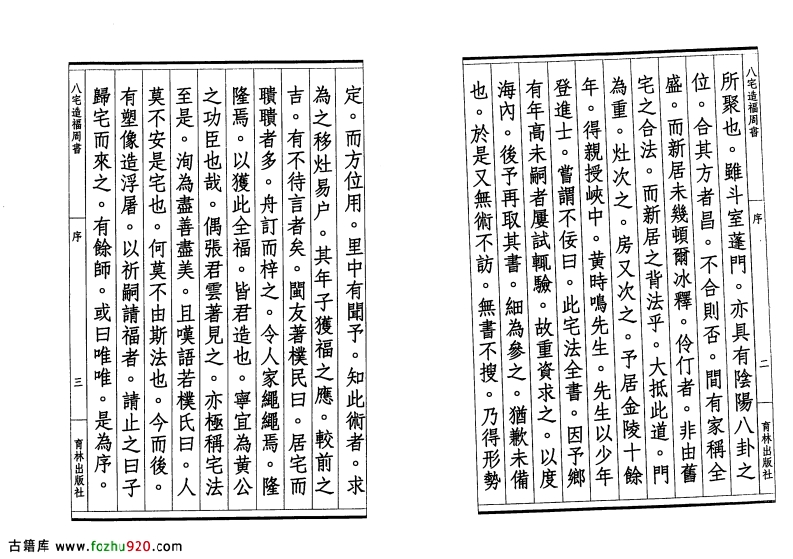 八宅造福周書
序
二
育林出版社
所聚也。雖斗室蓬門。亦具有陰陽八卦之
位。合其方者昌。不合則否。間有家稱全
盛。而新居未幾頓爾冰釋。伶仃者。非由舊
宅之合法。而新居之背法乎。大抵此道。門
為重。灶次之。房又次之。予居金陵十餘
年。得親授峽中。黃時鳴先生。先生以少年
登進士。嘗謂不佞曰。此宅法全書。因予鄉
有年高未嗣者屢試輒驗。故重資求之。以度
海內。後予再取其書。細為參之。猶歉未備
也。於是又無術不訪。無書不搜。乃得形勢
定。而方位用。里中有聞予。知此術者。求
為之移灶易户。其年子獲福之應。較前之
吉。有不待言者矣。閩友著樸民曰。居宅而
聵聵者多。舟訂而梓之。令人家繩繩焉。隆
隆焉。以獲此全福。皆君造也。寧宜為黃公
之功臣也哉。偶張君雲著見之。亦極稱宅法
至是。洵為盡善盡美。且嘆語若樸氏曰。人
莫不安是宅也。何莫不由斯法也。今而後。
有塑像造浮屠。以祈嗣請福者。請止之曰子
歸宅而來之。有餘師。或曰唯唯。是為序。
八宅造福周書
序
三
育林出版社
古籍库 www.fozhu920.com